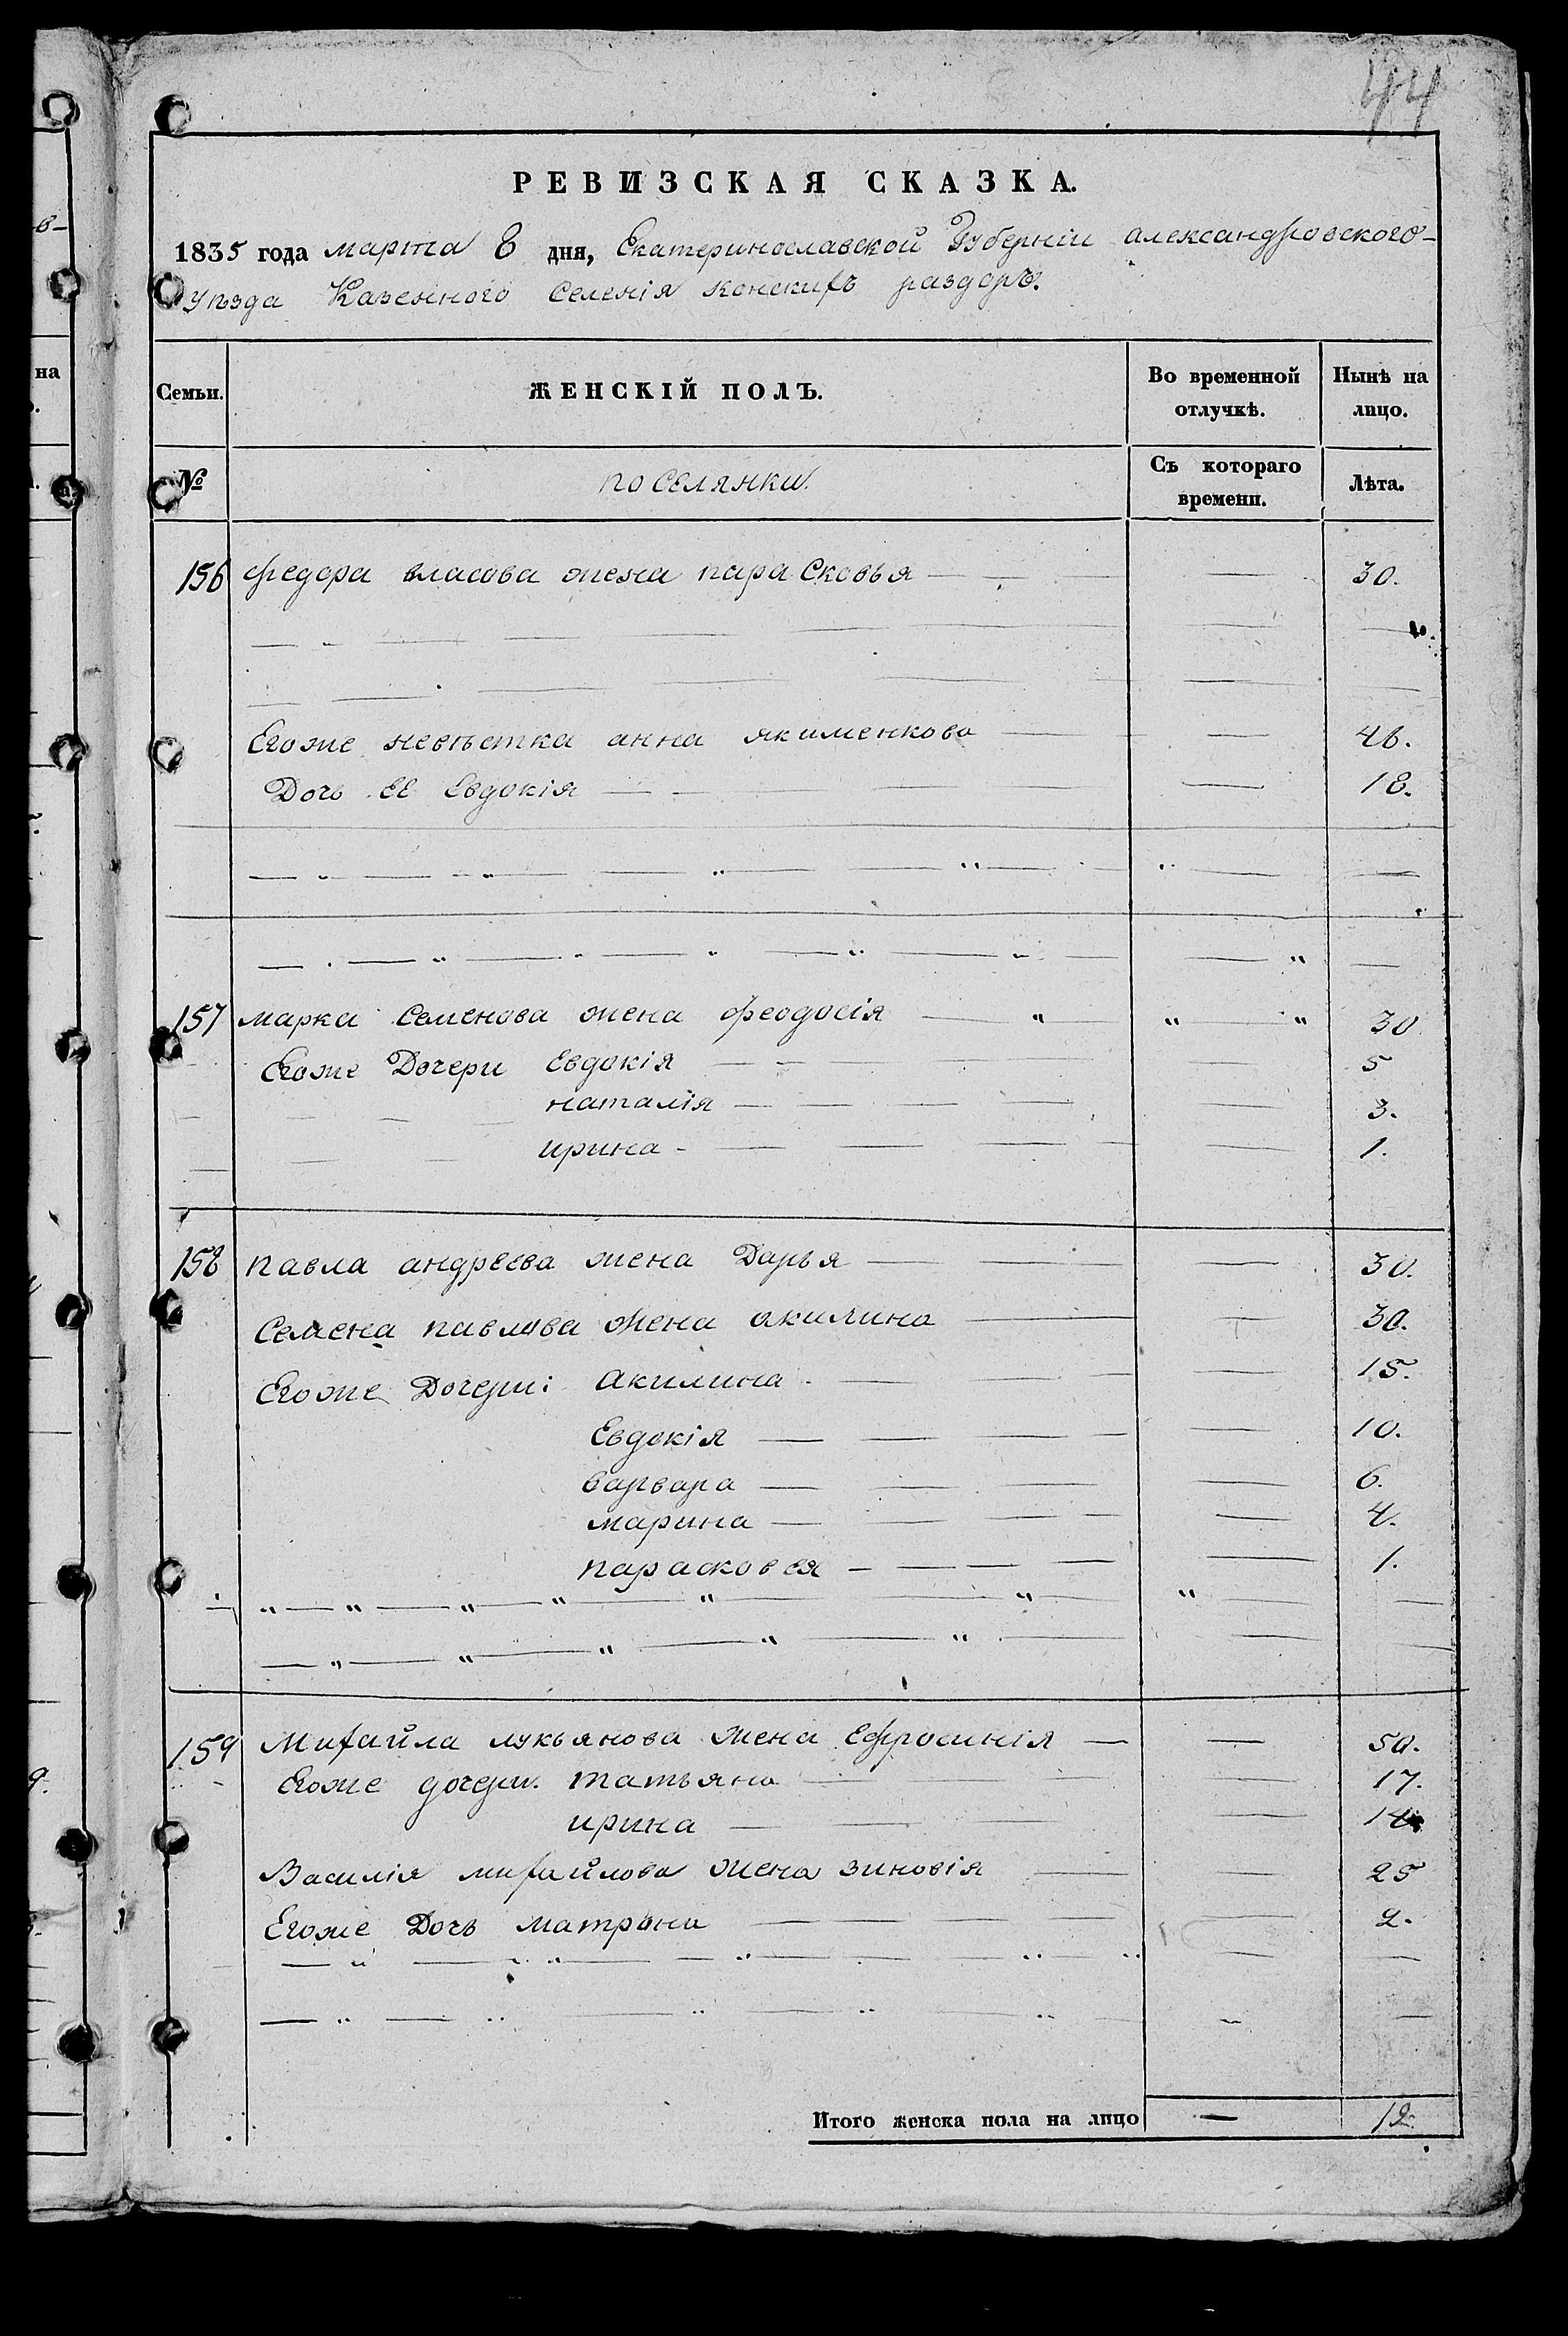 44
РЕВИЗСКАЯ СКАЗКА.
1835 года марта 8 дня, Екатеринославской Губерніи александровского
уѣзда Казенного Селенія конскихъ раздоръ.
Семьи. ЖЕНСКІЙ ПОЛЪ. Во временной отлучкѣ. Нынѣ на лицо.
№ поселянки. Съ котораго времени. Лѣта.
156 федора власова жена парасковья — — 30.
Егоже невѣстка анна якименкова — — 46.
Дочь ЕЕ Евдокія — — 18.
157 марка Семенова жена феодосія — — 30
Егоже Дочери Евдокія — — 5
наталія — — 3.
ирина — — 1.
158 павла андреева жена Дарья — — 30.
Семена павлова жена акилина — — 30.
Егоже Дочери: Акилина — — 15.
Евдокія — — 10.
варвара — — 6.
марина — — 4.
парасковея — — 1.
159 Михайла лукьянова жена Ефросинія — — 50.
Егоже дочери. татьяна — — 17.
ирина — —
Василія михайлова жена зиновія — — 25
Егоже Дочь матрона — — 2.
Итого женска пола на лицо — 19.